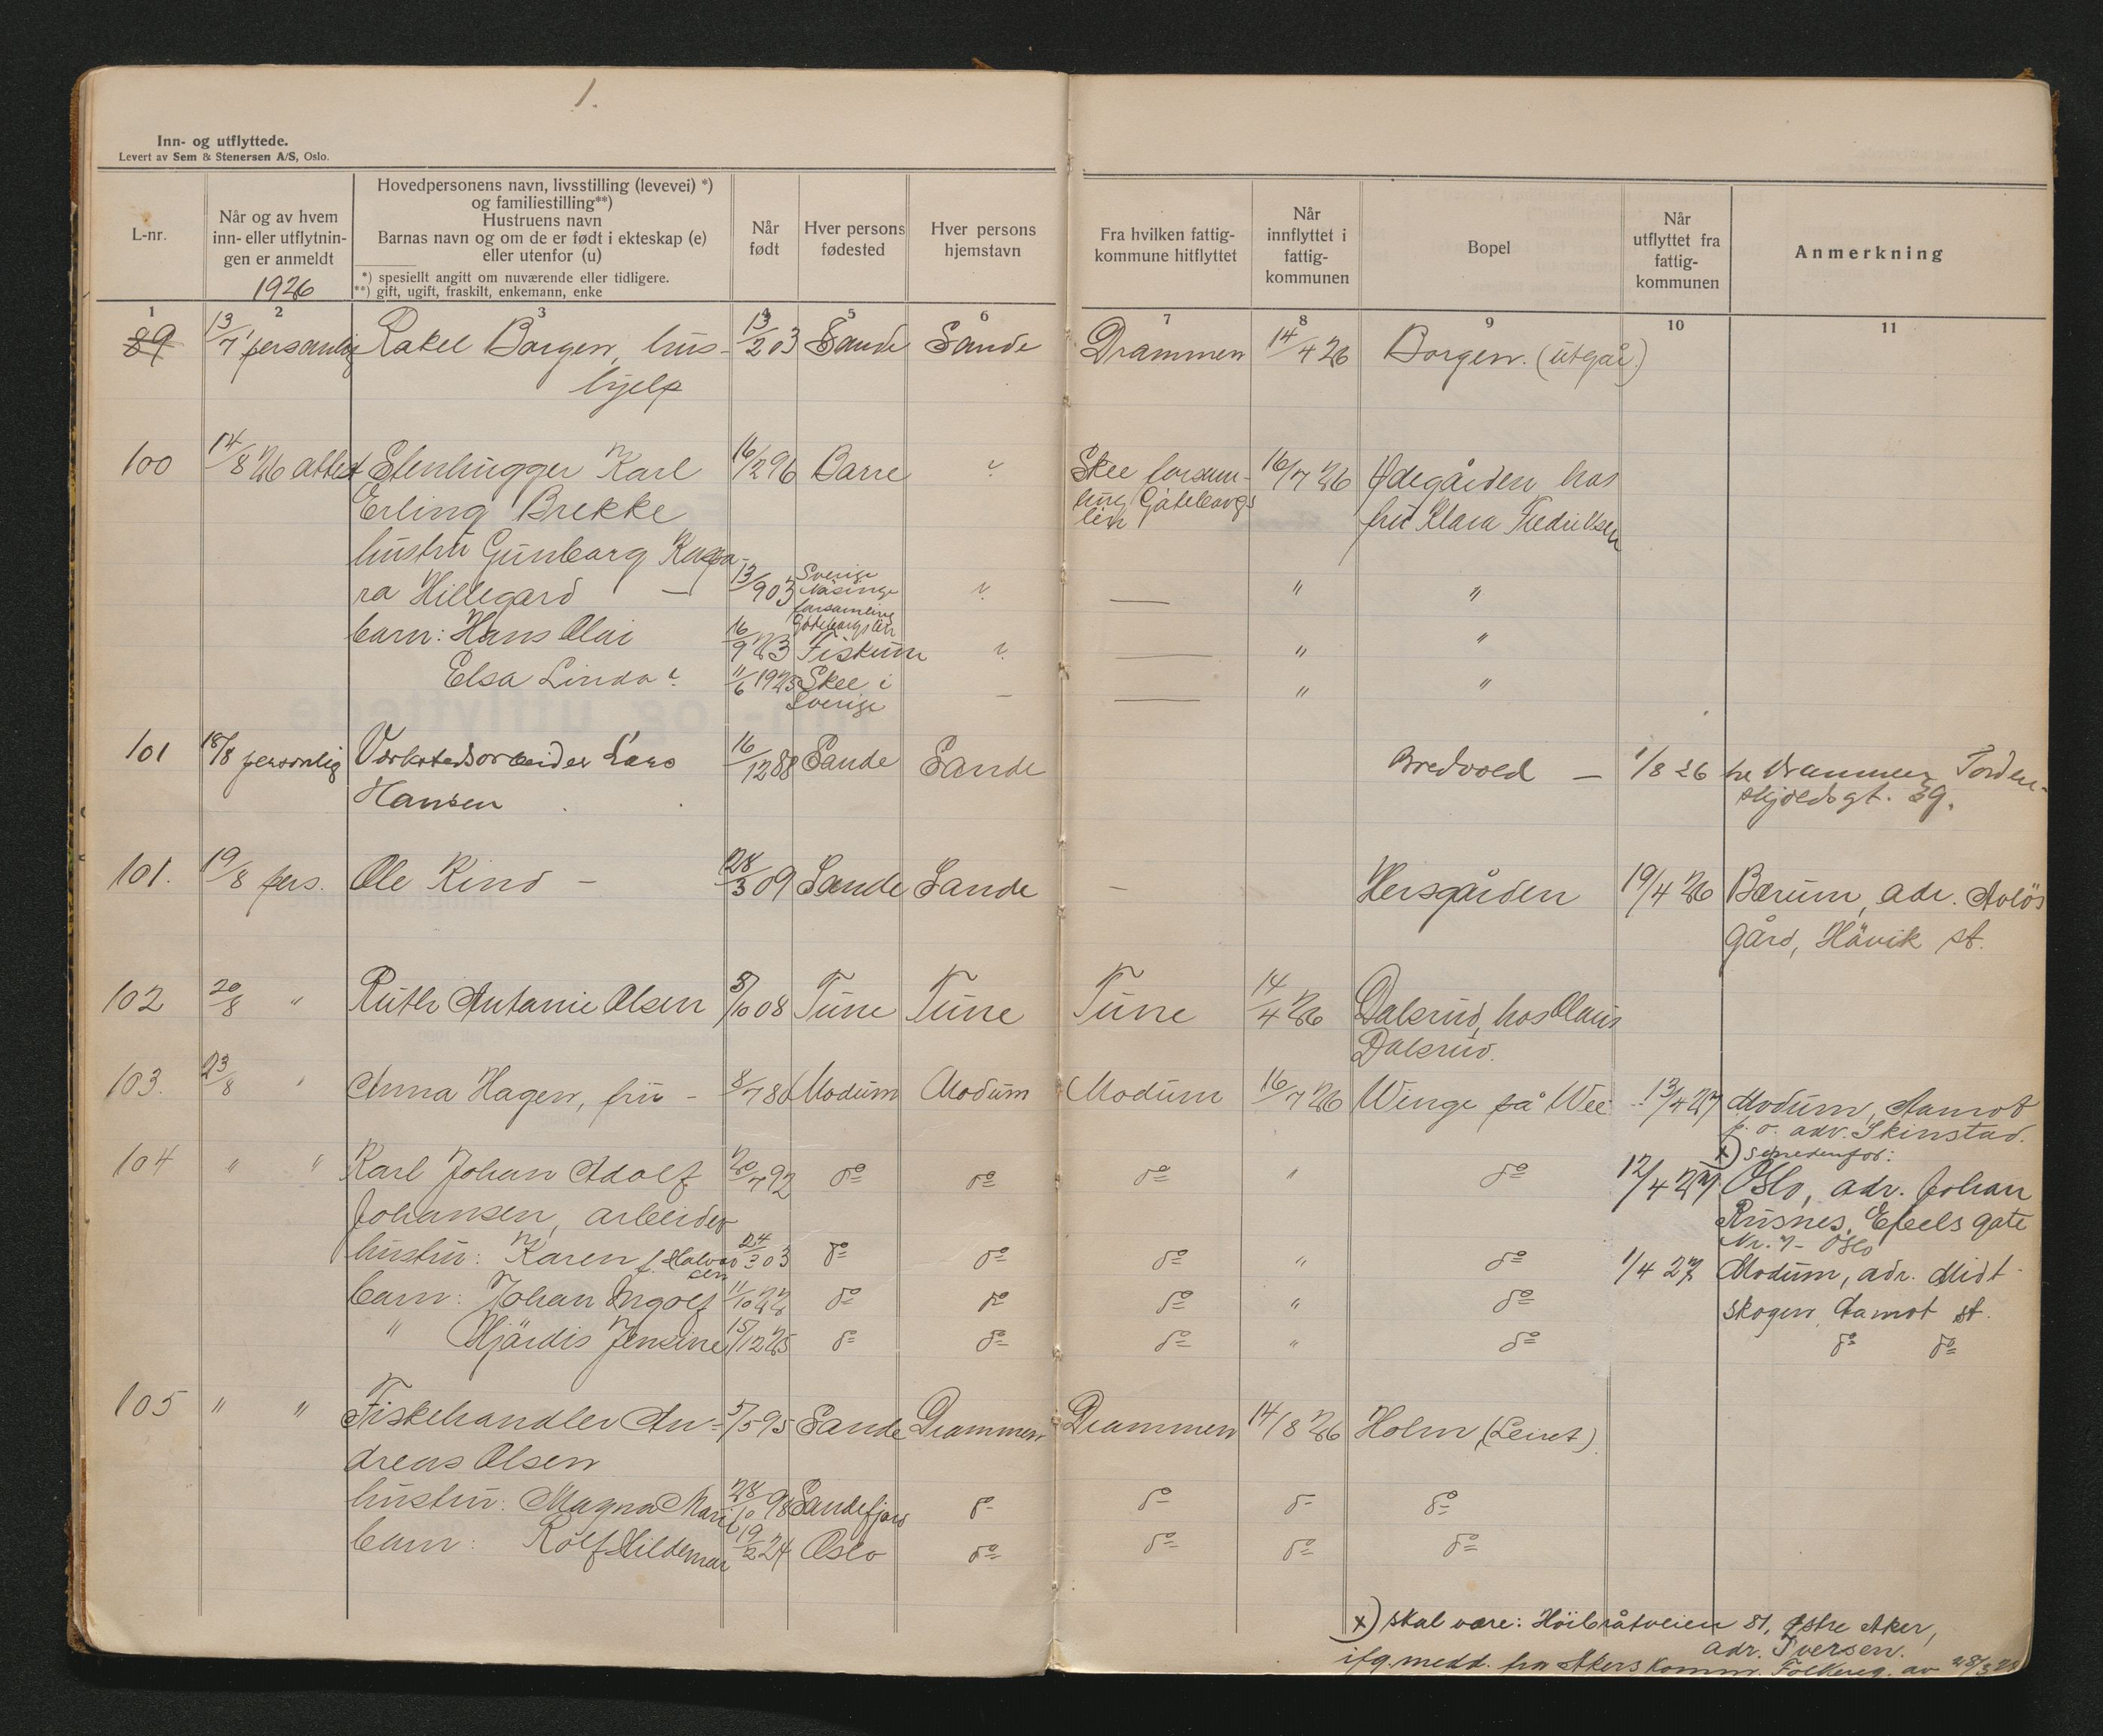 1.
Inn- og utflyttede.
Levert av Sem & Stenersen A/S, Oslo.
L-nr.
Når og av hvem
inn- eller utflytnin-
gen er anmeldt
1926
Hovedpersonens navn, livsstilling (levevei) *)
og familiestilling**)
Hustruens navn
Barnas navn og om de er født i ekteskap (e)
eller utenfor (u)
*) spesiellt angitt om nuværende eller tidligere.
**) gift, ugift, fraskilt, enkemann, enke
Når
født
Hver persons
fødested
Hver persons
hjemstavn
Fra hvilken fattig-
kommune hitflyttet
Når
innflyttet i
fattig-
kommunen
Bopel
Når
utflyttet fra
fattig-
kommunen
Anmerkning
1 2 3 4 5 6 7 8 9 10 11
89 13/7 personlig Rakel Borgen, hus- 13/2 03 Sande Sande Drammen 14/4 26 Borgen. (utgår.)
hjelp
100 14/8 26 attest Stenhugger Karl 16/2 96 Borre ? Skee forsam- 16/7 26 Ødegården hos
Erling Brekke ling Göteborgs fru Klara Fredriksen
län
hustru Gunborg
ra Hillegard — 13/9 03 Sverige ? — " "
Näsinge
forsamling
Göteborgs län
barn: Hans Olai 16/9 23 Fiskum ? — " "
Elsa Linda ? 11/6 1925 Skee i — — " "
Sverige
101 18/8 personlig Verkstedsarbeider Lars 16/12 88 Sande Sande Bredvold — 1/8 26 Drammen Torden-
Hansen skjoldsgt. 39.
101. 19/8 pers. Ole Kind — 28/3 09 Sande Sande — Hersgården 19/4 26 Bærum, adr. Avløs
gård, Hövik st.
102 20/8 " Ruth Antonie Olsen 3/10 08 Tune Tune Tune 14/4 26 Dalsrud, hos Olaus
Dalsrud.
103. 23/8 " Anna Hagen, fru - 8/7 80 Modum Modum Modum 16/7 26 Winge på Wee 13/4 27 Modum, Aamot
p. o. adr. Skinstad.
x) se nedenfor:
104 " " Karl Johan Adolf 20/7 92 do do do " do 12/4 27 Oslo, adr. Johan
Johansen, arbeider Rusnes, Ebbels gate
Nr. 7 - Oslo
hustru: Karen f. Halvor 24/3 03 do do do " do 1/4 27 Modum, adr. Midt-
sen
barn: Johan Ingolf 11/10 22 do do do " do skogen, Aamot st.
" Hjördis Jensine 15/12 25 do do do " do do do
105 " " Fiskehandler An- 5/5 95 Sande Drammen Drammen 14/8 26 Holm (Leiret)
dreas Olsen
hustru: Magna Marie 28/10 98 Sandefjord do do do do
barn: Rolf Hildemar 19/2 24 Oslo do do do do
x) skal være: Höibråtveien 81, Østre Aker,
adr. Iversen.
ifg. medd. fra Akers komm. Folkereg. av 28/3